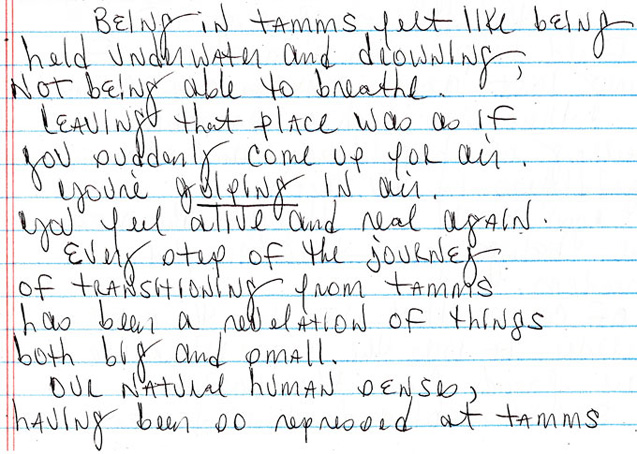 Being in Tamms felt like being
held underwater and drowning,
not being able to breathe.
Leaving that place was as if
you suddenly come up for air.
you're gulping in air.
you feel alive and real again.
Every step of the journey
of transitioning from Tamms
has been a revelation of things
both big and small.
Our natural human senses,
having been so repressed at Tamms